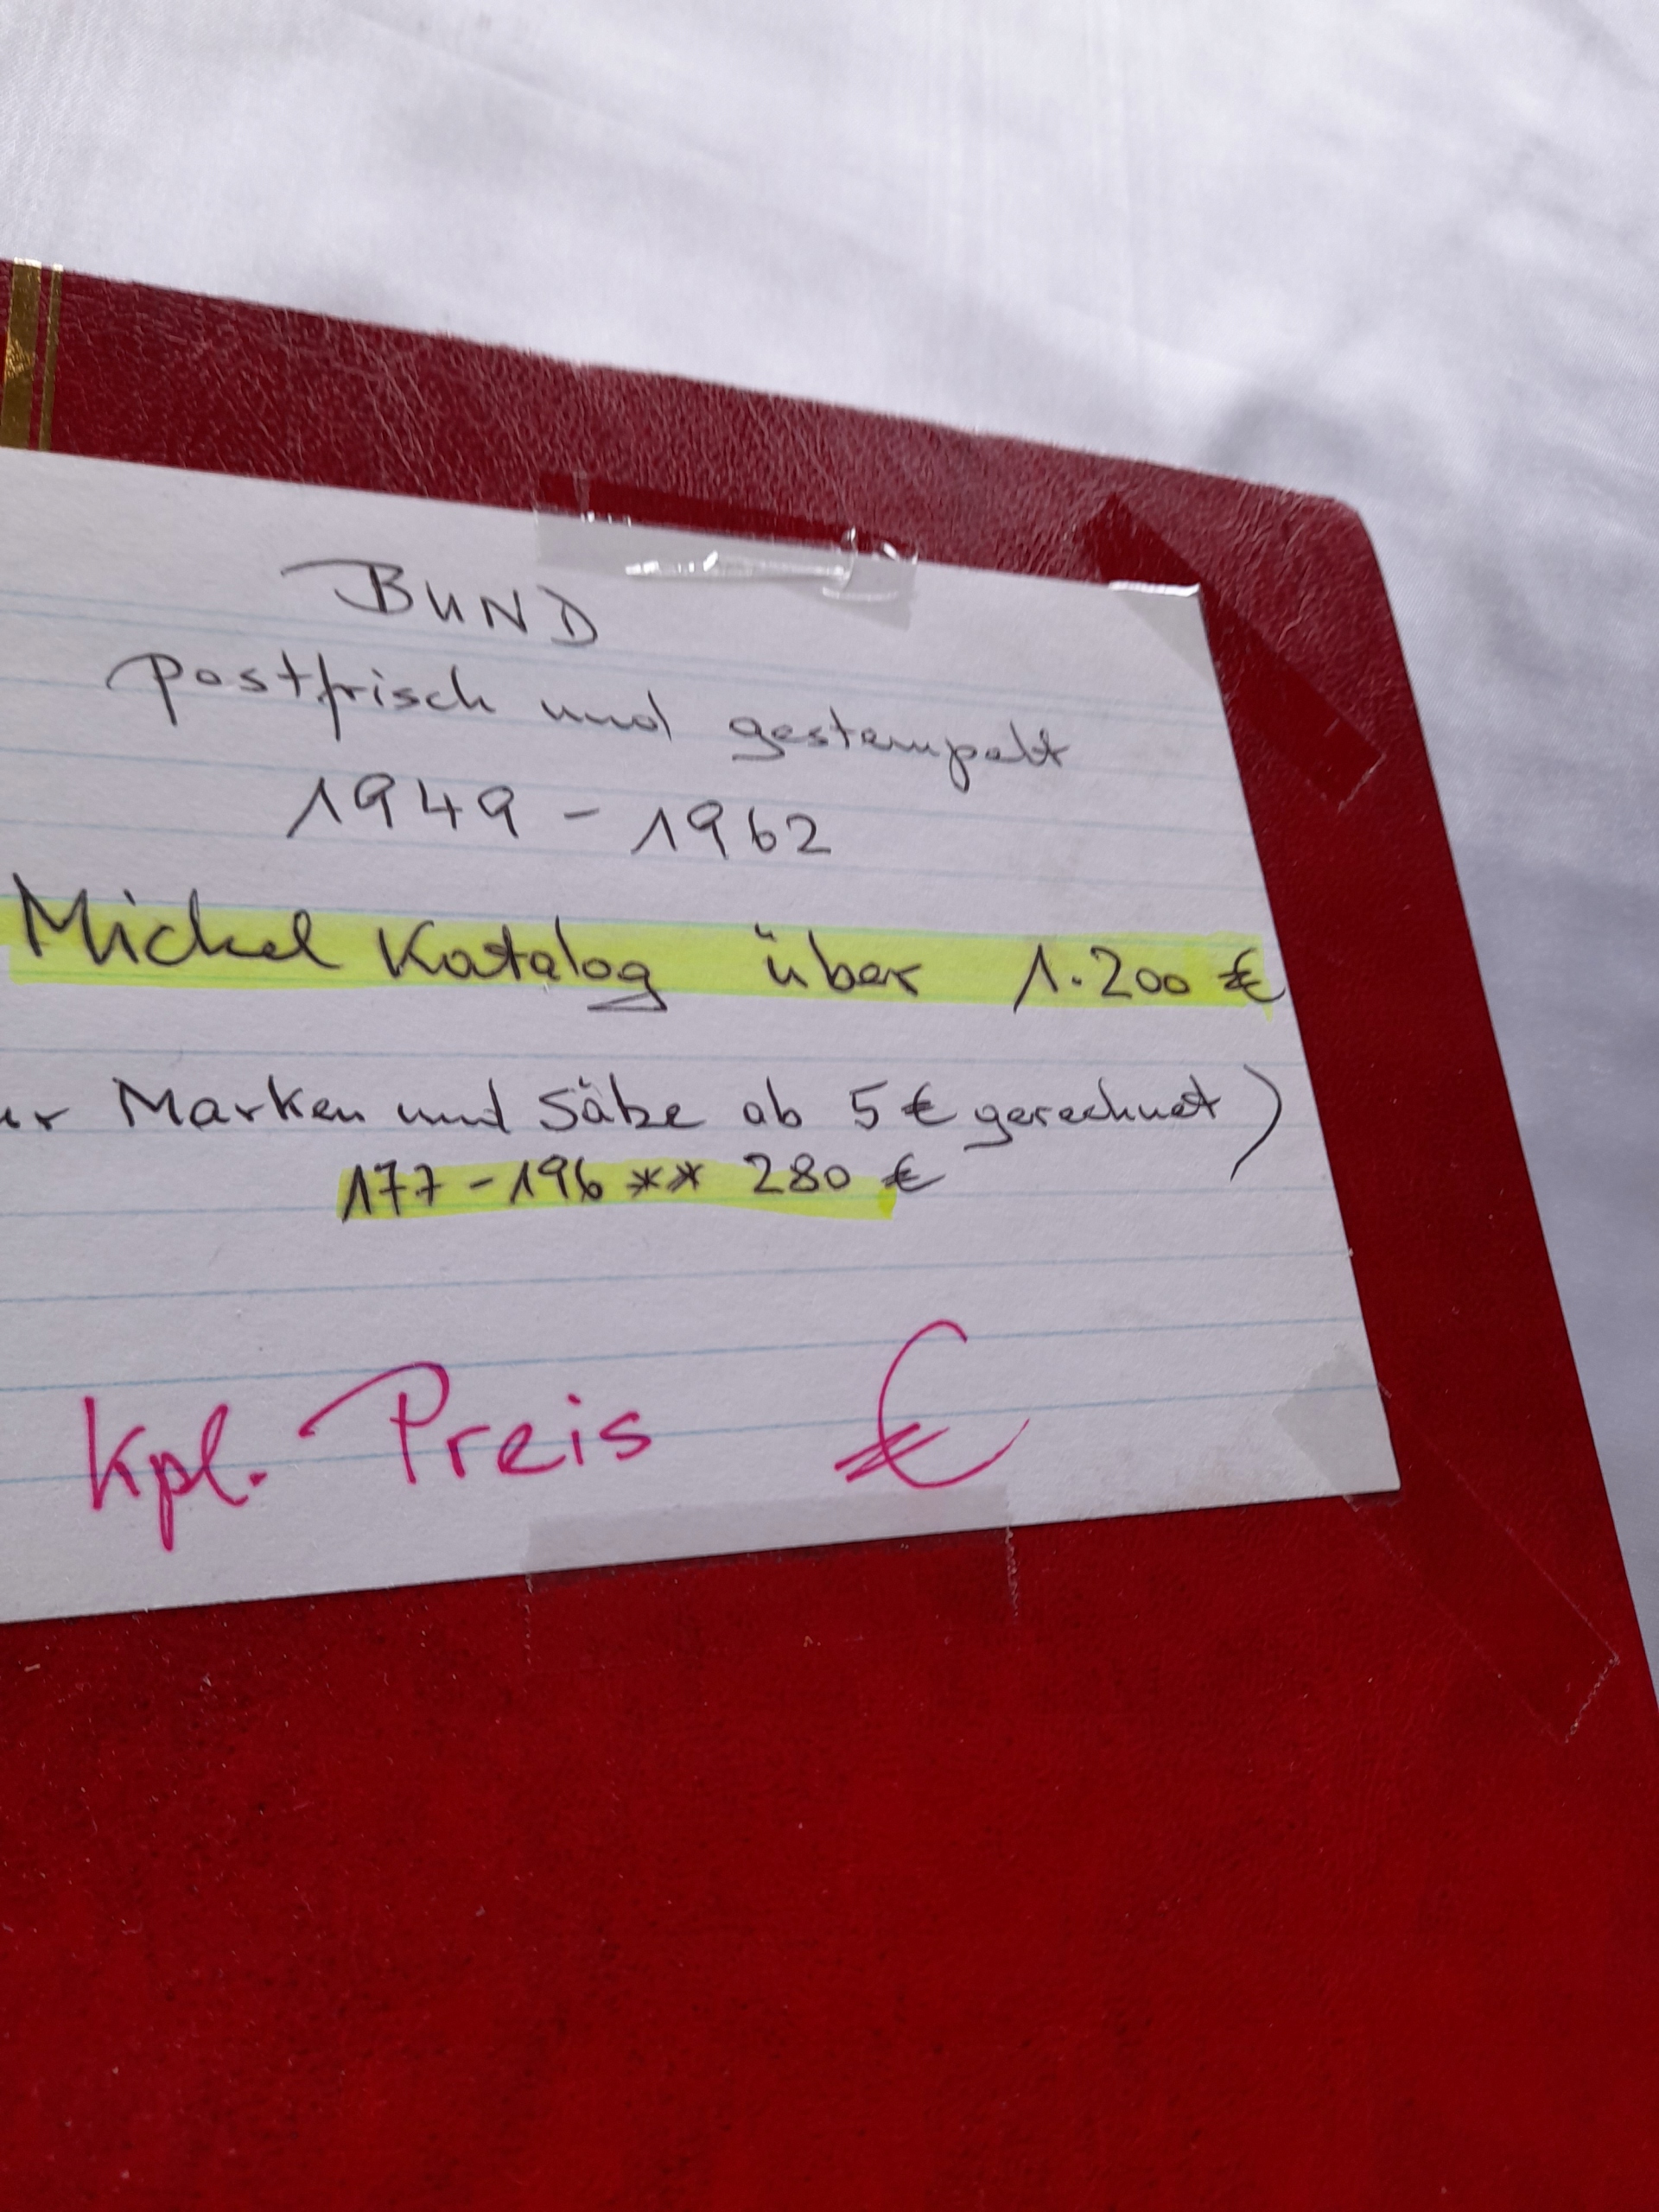 BUND
postfrisch und gestempelt
1949 - 1962
Michel Katalog über 1.200 €
Marken und Sätze ab 5 € gerechnet)
177 - 196 ** 280 €
Kpl. Preis €